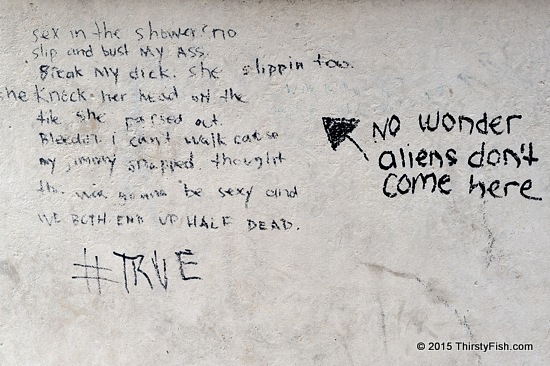 sex in the shower? no
slip and bust my ass.
Break my dick. she slippin too.
she knock her head on the
tile she passed out.
Bleedin i can't walk cause
my jimmy snapped thought
this was gonna be sexy and
WE BOTH END UP HALF DEAD.
#TRUE
No wonder
aliens don't
come here
© 2015 ThirstyFish.com